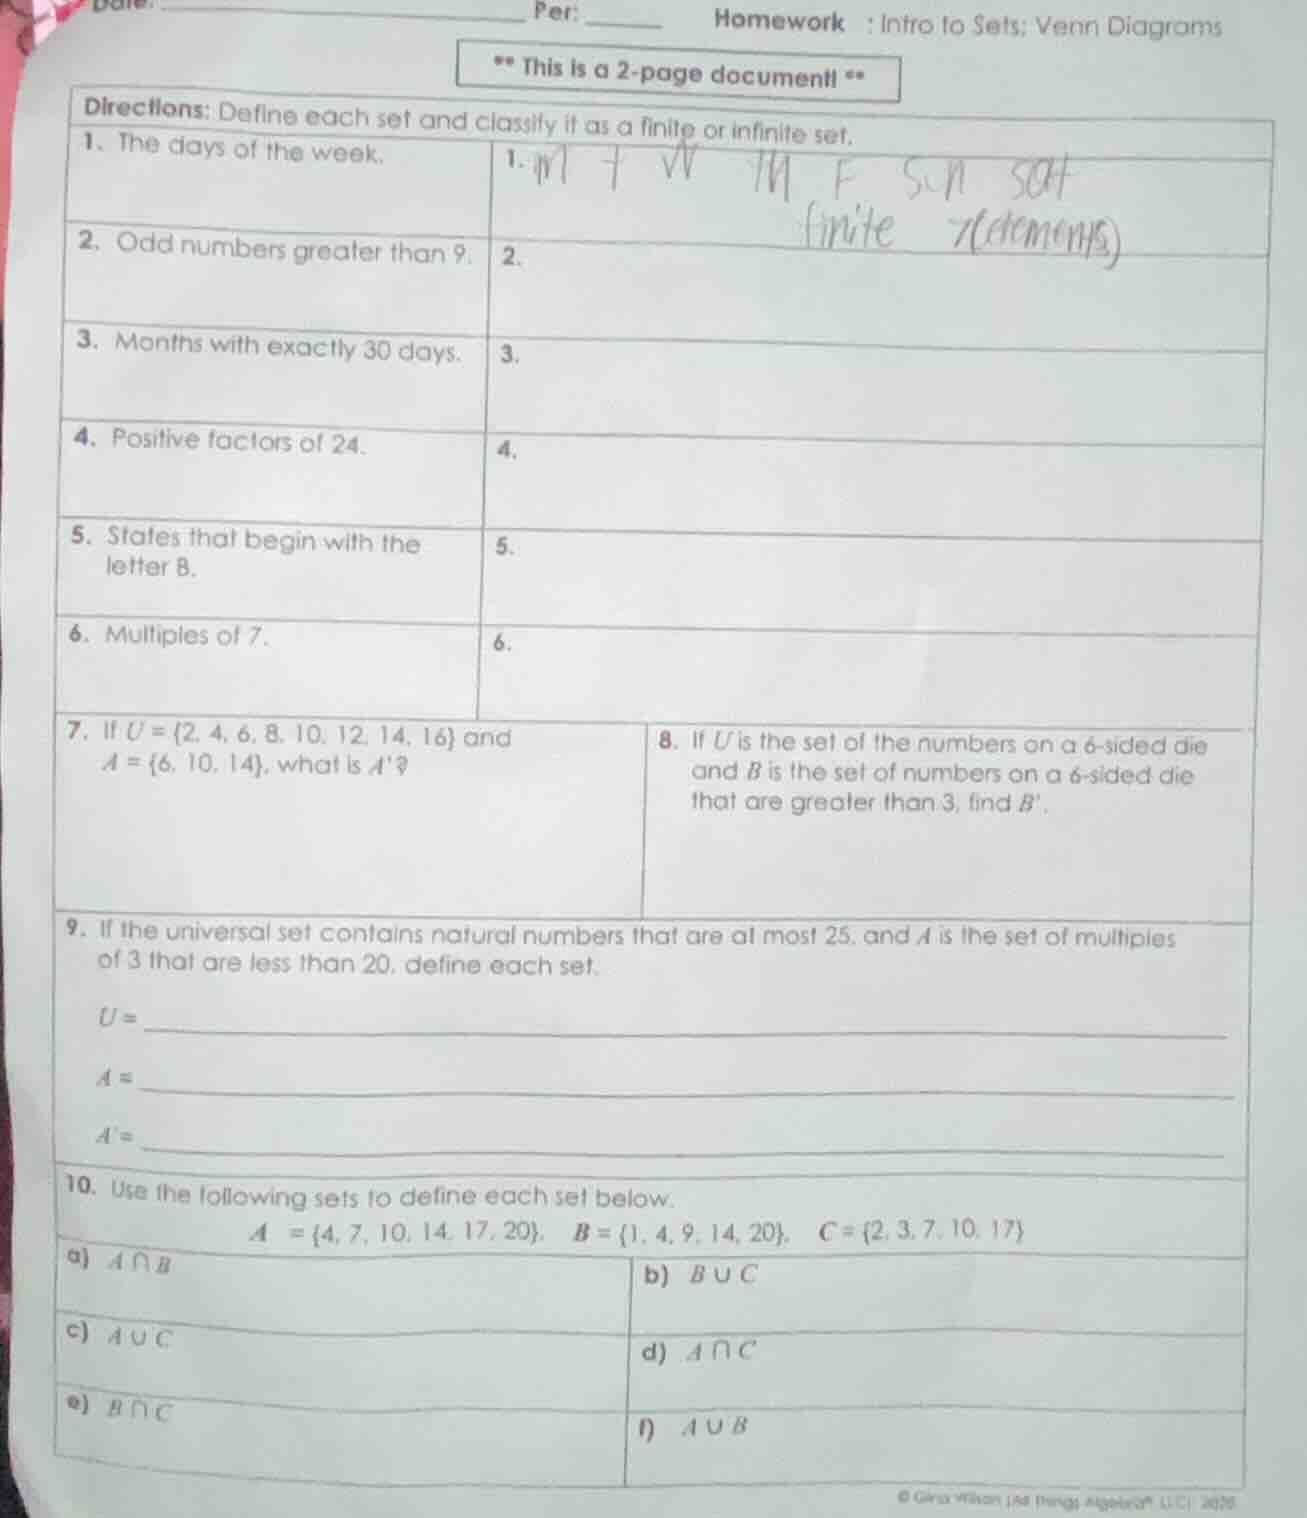 Date:
Per:
Homework : Intro to Sets; Venn Diagrams
** This is a 2-page document! **
Directions: Define each set and classify it as a finite or infinite set.
1. The days of the week.
1. M T W TH F Sun Sat
finite 7(elements)
2. Odd numbers greater than 9.
2.
3. Months with exactly 30 days.
3.
4. Positive factors of 24.
4.
5. States that begin with the
letter B.
5.
6. Multiples of 7.
6.
7. If U = {2, 4, 6, 8, 10, 12, 14, 16} and
A = {6, 10, 14}, what is A'?
8. If U is the set of the numbers on a 6-sided die
and B is the set of numbers on a 6-sided die
that are greater than 3, find B'.
9. If the universal set contains natural numbers that are at most 25, and A is the set of multiples
of 3 that are less than 20, define each set.
U =
A =
A' =
10. Use the following sets to define each set below.
A = {4, 7, 10, 14, 17, 20}, B = {1, 4, 9, 14, 20}, C = {2, 3, 7, 10, 17}
a) A ∩ B
b) B ∪ C
c) A ∪ C
d) A ∩ C
e) B ∩ C
f) A ∪ B
© Gina Wilson (All Things Algebra®, LLC), 2020